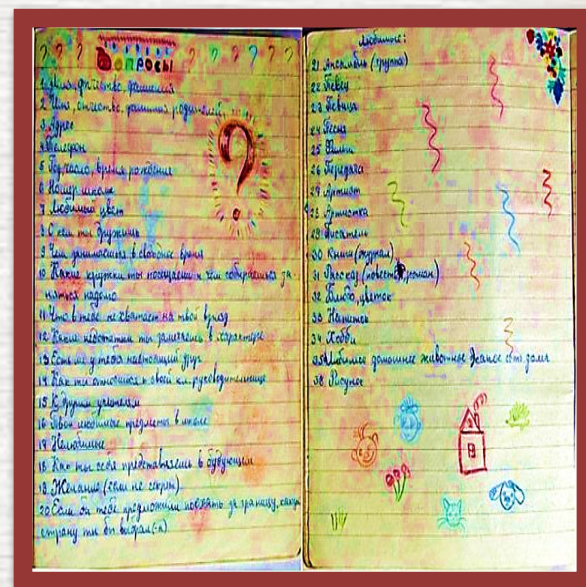 Вопросы
1. Имя, отчество, фамилия
2 Имя, отчество, фамилия родителей.
3 Адрес
4 Телефон
5 Год, число, время рождения
6 Номер школы
7 Любимый цвет
8 С кем ты дружишь
9 Чем занимаешься в свободное время
10 Какие кружки ты посещаешь и чем собираешься за-
няться надолго
11 Что в тебе не хватает на твой взгляд
12 Какие недостатки ты замечаешь в характере
13 Есть ли у тебя настоящий друг
14 Как ты относишься к своей кл. руководительнице
15 К другим учителям
16 Твои любимые предметы в школе
17 Нелюбимые
18 Как ты себя представляешь в будующем
19 Желание (если не секрет)
20 Если бы тебе предложили поехать за границу, какую
страну ты бы выбрал(-а)
Любимые:
21 Ансамбль (группа)
22 Певец
23 Певица
24 Песня
25 Фильм
26 Передача
27 Артист
28 Артистка
29 Писатель
30 Книга (журнал)
31 Рассказ (повесть, роман)
32 Блюдо, цветок
33 Напиток
34 Хобби
35 Любимое домашнее животное Какое есть дома
36 Рисунок